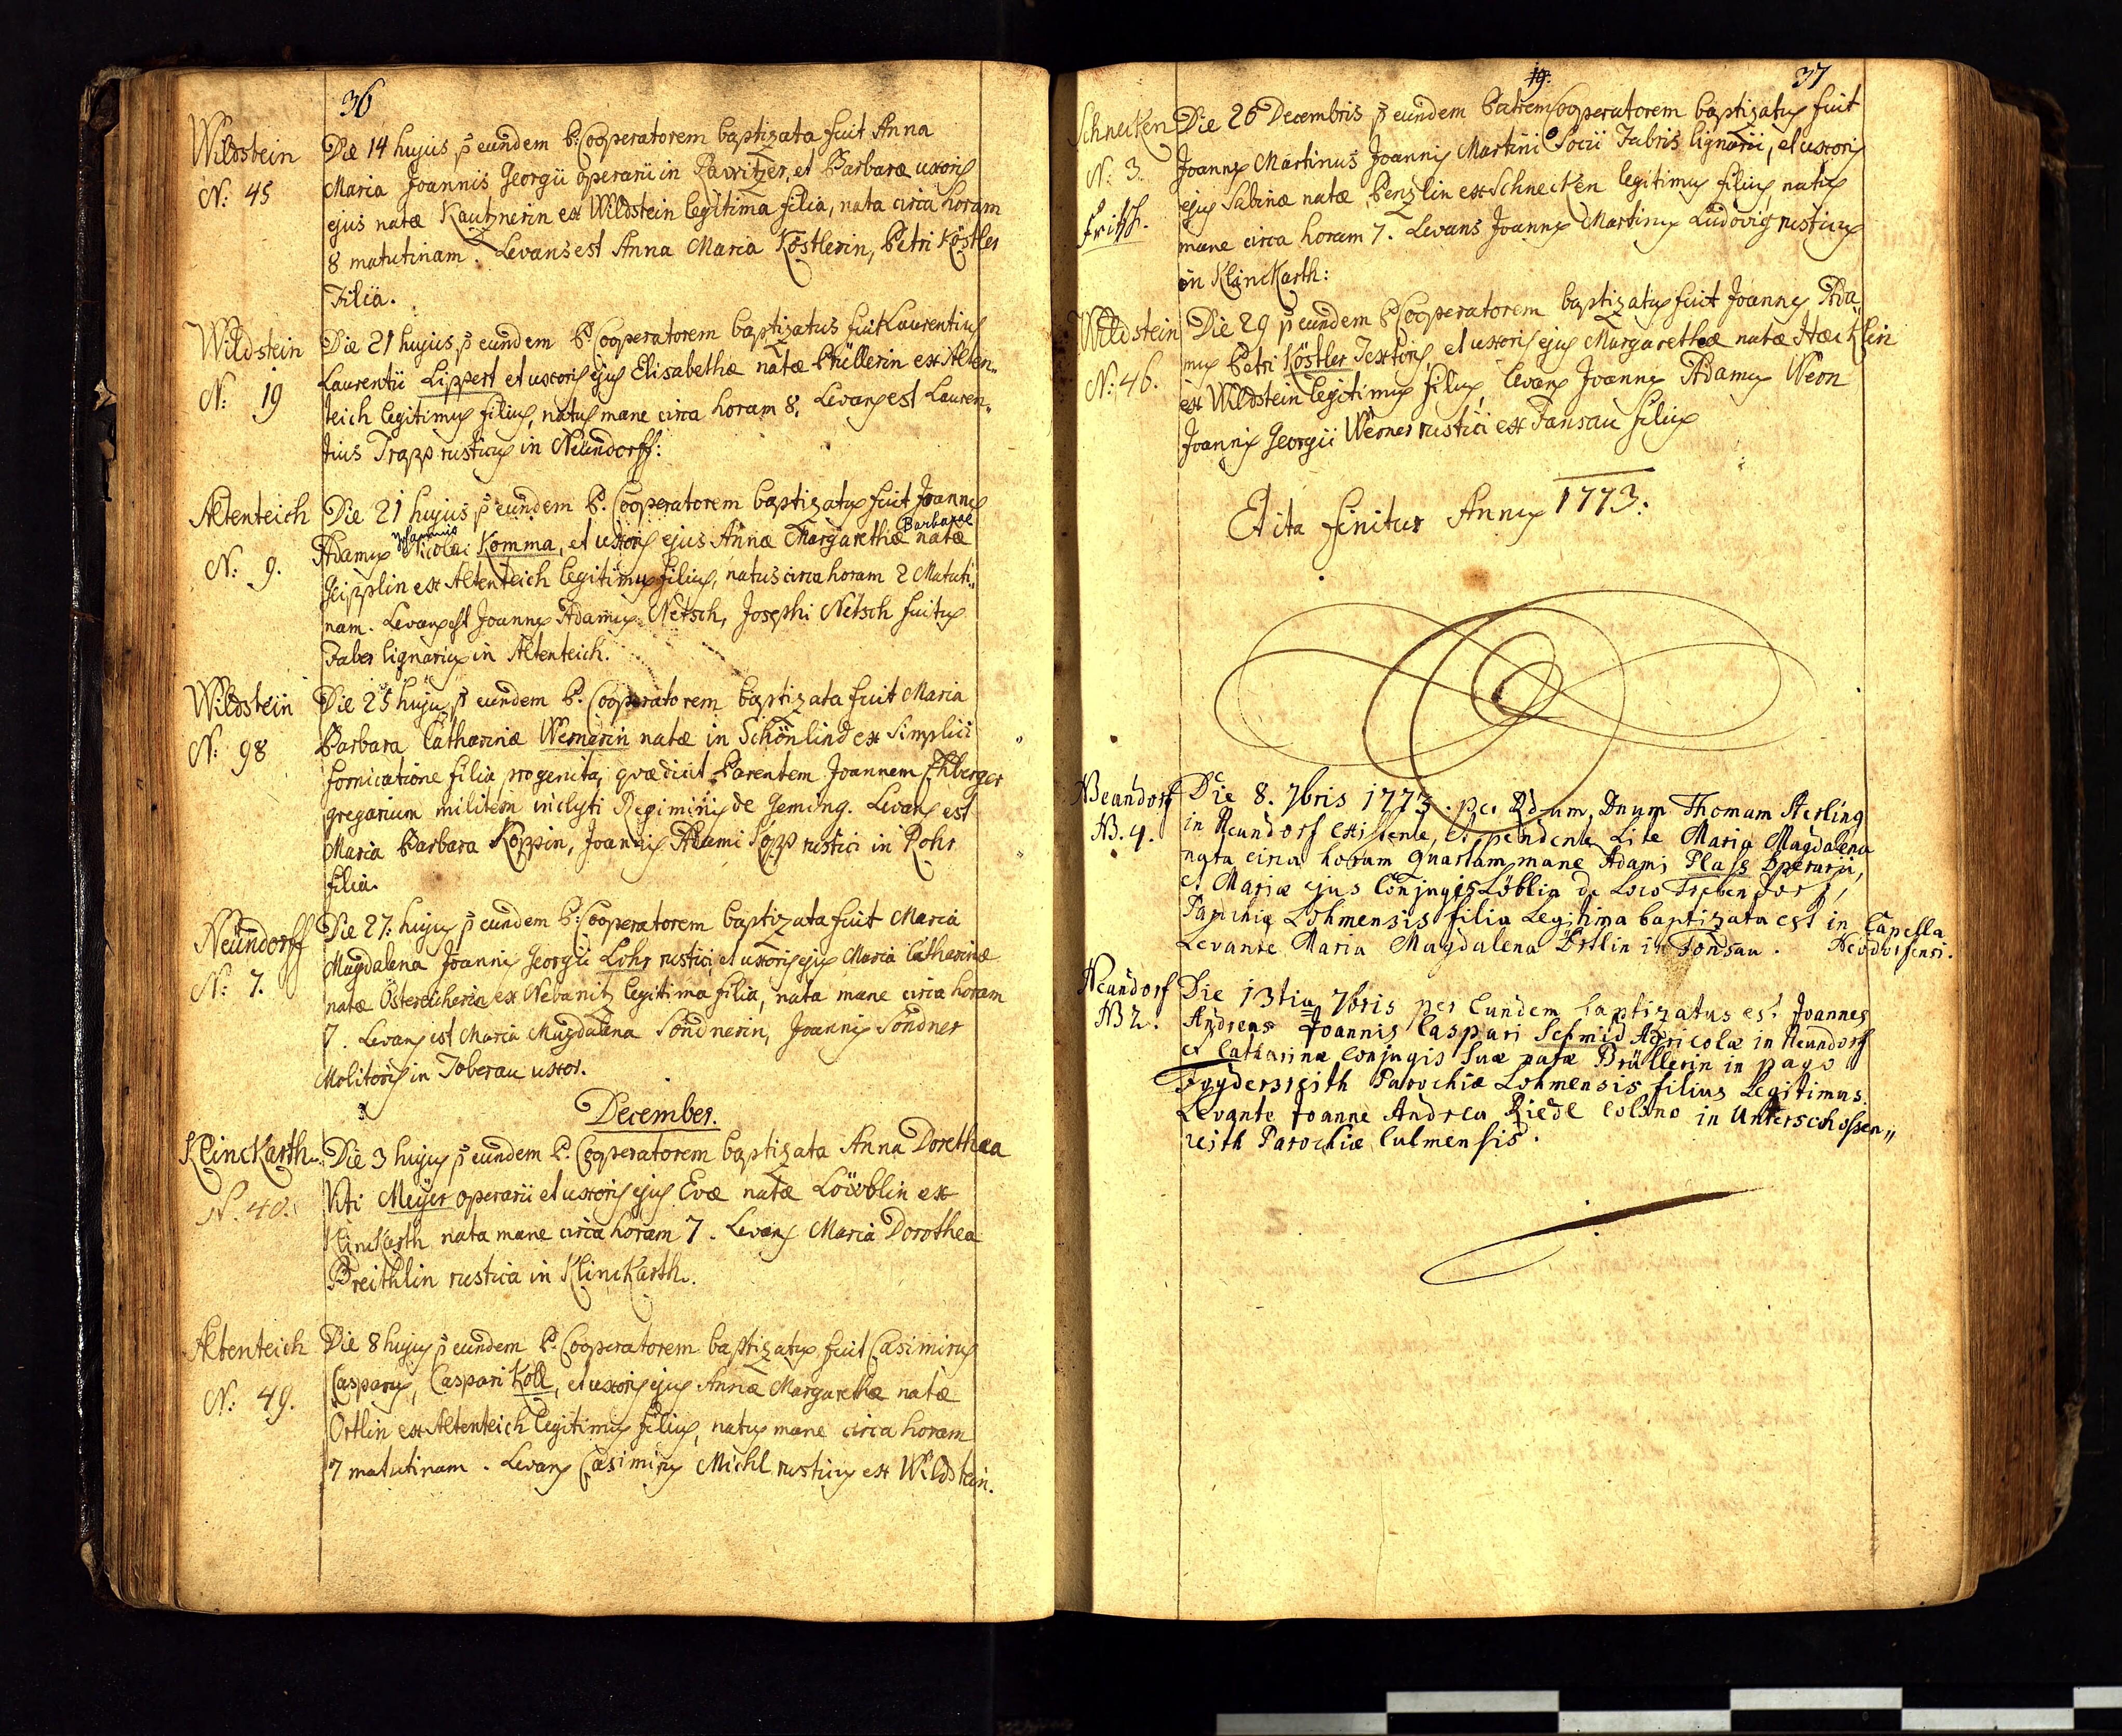 36
Wildstein
N: 45
Die 14 hujus p eundem P. Cooperatorem baptizata fuit Anna
Maria Joannis Georgii operarii in Rawitzer, et Barbaræ uxoris
ejus natæ Kautznerin ex Wildstein legitima filia, nata circa horam
8 matutinam. Levans est Anna Maria Köstlerin, Petri Köstler
Filia.
Wildstein
N: 19
Die 21 hujus, p eundem P. Cooperatorem baptizatus fuit Laurentius
Laurentii Lippert et uxoris ejus Elisabethæ natæ Prüllerin ex Alten„
teich legitimus filius, natus mane circa horam 8. Levans est Lauren„
tius Trapp rusticus in Neündorff:
Altenteich
N: 9.
Die 21 hujus p eundem P. Cooperatorem baptizatus fuit Joannes
Adamus Nicolai Komma, et uxoris ejus Annæ Margarethæ natæ
Johannis Barbarae
Geipplin ex Altenteich legitimus filius, natus circa horam 2 Matuti„
nam. Levans est Joannes Adamus Netsch, Josephi Netsch
Faber lignarius in Altenteich.
Wildstein
N: 98
Die 25 hujus p eundem P. Cooperatorem baptizata fuit Maria
Barbara Catharinæ Wernerin natæ in Schönlind ex Simplici
fornicatione filia progenita, quæ dicit Parentem Joannem Ehberger
gregarium militem inclyti Regiminis de Geming. Levans est
Maria Barbara Koppin, Joannis Adami Kopp rustici in Rohr
filia.
Neündorff
N: 7.
Die 27. hujus p eundem P. Cooperatorem baptizata fuit Maria
Magdalena Joannis Georgii Lohr rustici, et uxoris ejus Maria Catharinæ
natæ Östereicherin ex Nebanitz legitima filia, nata mane circa horam
7. Levans est Maria Magdalena Söndnerin, Joannis Söndner
Molitoris in Toberau uxor.
December.
Klinckarth.
N. 40.
Die 3 hujus p eundem P. Cooperatorem baptizata Anna Dorethea
Viti Meÿer operarii et uxoris ejus Evæ natæ Löwblin ex
Klinckarth nata mane circa horam 7. Levans Maria Dorothea
Breithlin rustica in Klinckarth.
Altenteich
N: 49.
Die 8 hujus p eundem P. Cooperatorem baptizatus fuit Casimirus
Casparus, Caspari Köll, et uxoris ejus Annæ Margarethæ natæ
Ortlin ex Altenteich legitimus filius, natus mane circa horam
7 matutinam. Levans Casimirus Michl rusticus ex Wildstein.
19. 37
Schnecken
N: 3.
Fritsch.
Die 26 Decembris p eundem Patrem Cooperatorem baptizatus fuit
Joannes Martinus Joannis Martini Socii Fabris lignarii, et uxoris
ejus Sabinæ natæ Penzlin ex Schnecken legitimus filius, natus
mane circa horam 7. Levans Joannes Martinus Ludovig rusticus
in Klinckarth:
Wildstein
N: 46.
Die 29 p eundem P Cooperatorem baptizatus fuit Joannes Ada„
mus Petri Köstler, Textoris, et uxoris ejus Margarethæ natæ Hæcklin
ex Wildstein legitimus filius, levans Joannes Adamus Wern
Joannis Georgii Werner rustici ex Fansau filius
Et ita finitur Annus 1773:
Neundorf
N. 4.
Die 8. 7bris 1773. per Rdum Dnum Thomam Sterling
in Neundorf existente, et pendente Lite Maria Magdalena
nata circa horam quartam mane Adami Plass Operarii,
et Mariæ ejus Conjugis Löblin de Loco Trebendorf,
Parochiæ Lohmensis filia Legitima baptizata est in Capella
Levante Maria Magdalena Örtlin in Fonsau. Neodorfensi.
Neundorf
N 2.
Die 13tia 7bris per Eundem baptizatus est Joannes
Andreas Joannis Caspari Schmid Agricolæ in Neundorf
et Catharinæ Conjugis Suæ natæ Brüllerin in pago
Voydersreith Parochiæ Lohmensis filius Legitimus.
Levante Joanne Andrea Riedl Colono in Unterschossen„
reith Parochiæ Culmensis.